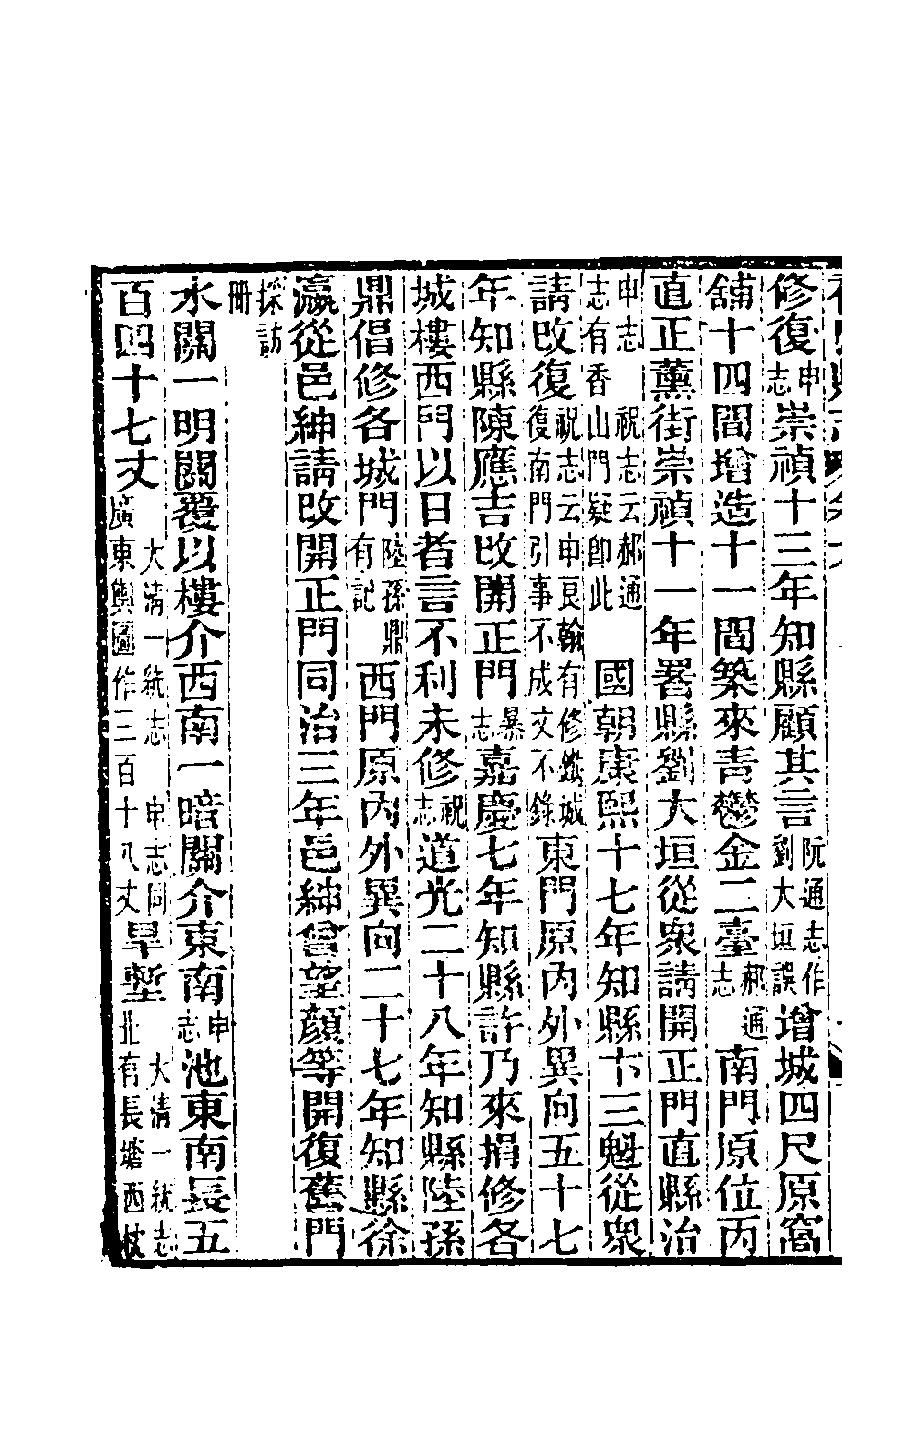 修復申志崇禎十三年知縣顧其言阮通志作劉大垣誤增城四尺原窩
舖十四間增造十一間築來青鬱金二臺郝通志南門原位丙
直正薰街崇禎十一年署縣劉大垣從衆請開正門直縣治
申志祝志云郝通志有香山門疑卽此國朝康熙十七年知縣卞三魁從衆
請改復祝志云申良翰有修濬城復南門引事不成文不錄東門原內外異向五十七
年知縣陳應吉改開正門暴志嘉慶七年知縣許乃來捐修各
城樓西門以日者言不利未修祝志道光二十八年知縣陸孫
鼎倡修各城門陸孫鼎有記西門原內外異向二十七年知縣徐
瀛從邑紳請改開正門同治三年邑紳曾望顏等開復舊門
採訪冊
水關一明關覆以樓介西南一暗關介東南申志池東南長五
百四十七丈大淸一統志申志同廣東輿圖作三百十八丈旱塹大淸一統志北有長塘西枕